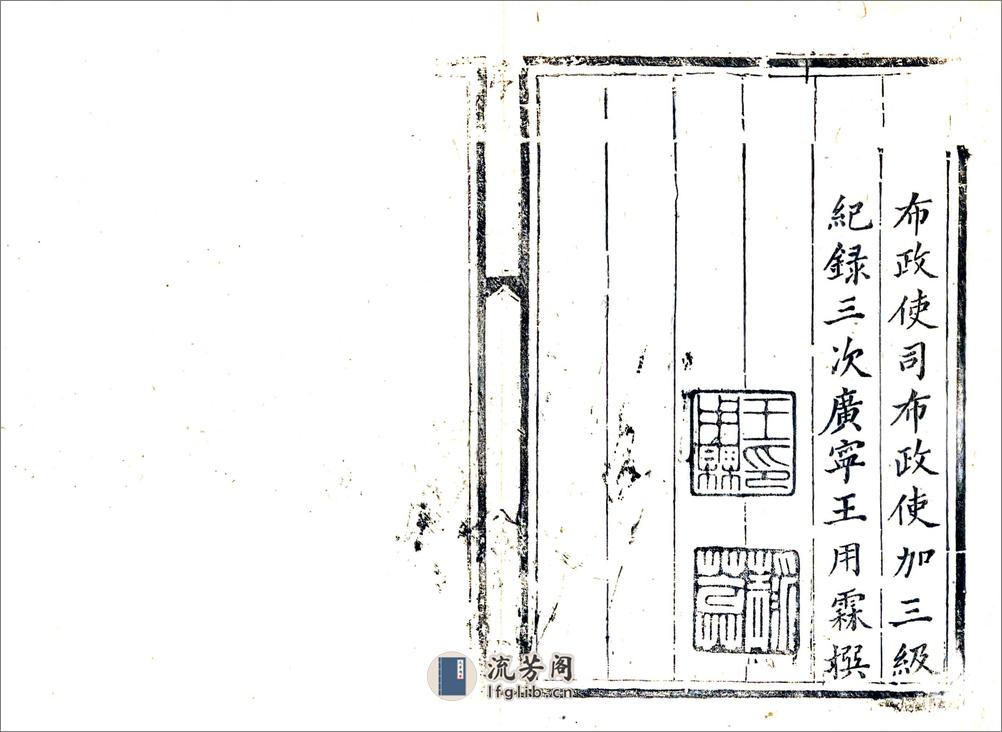 布政使司布政使加三級
紀録三次廣寧王用霖撰
王印用霖
流芳阁
lfglib.cn